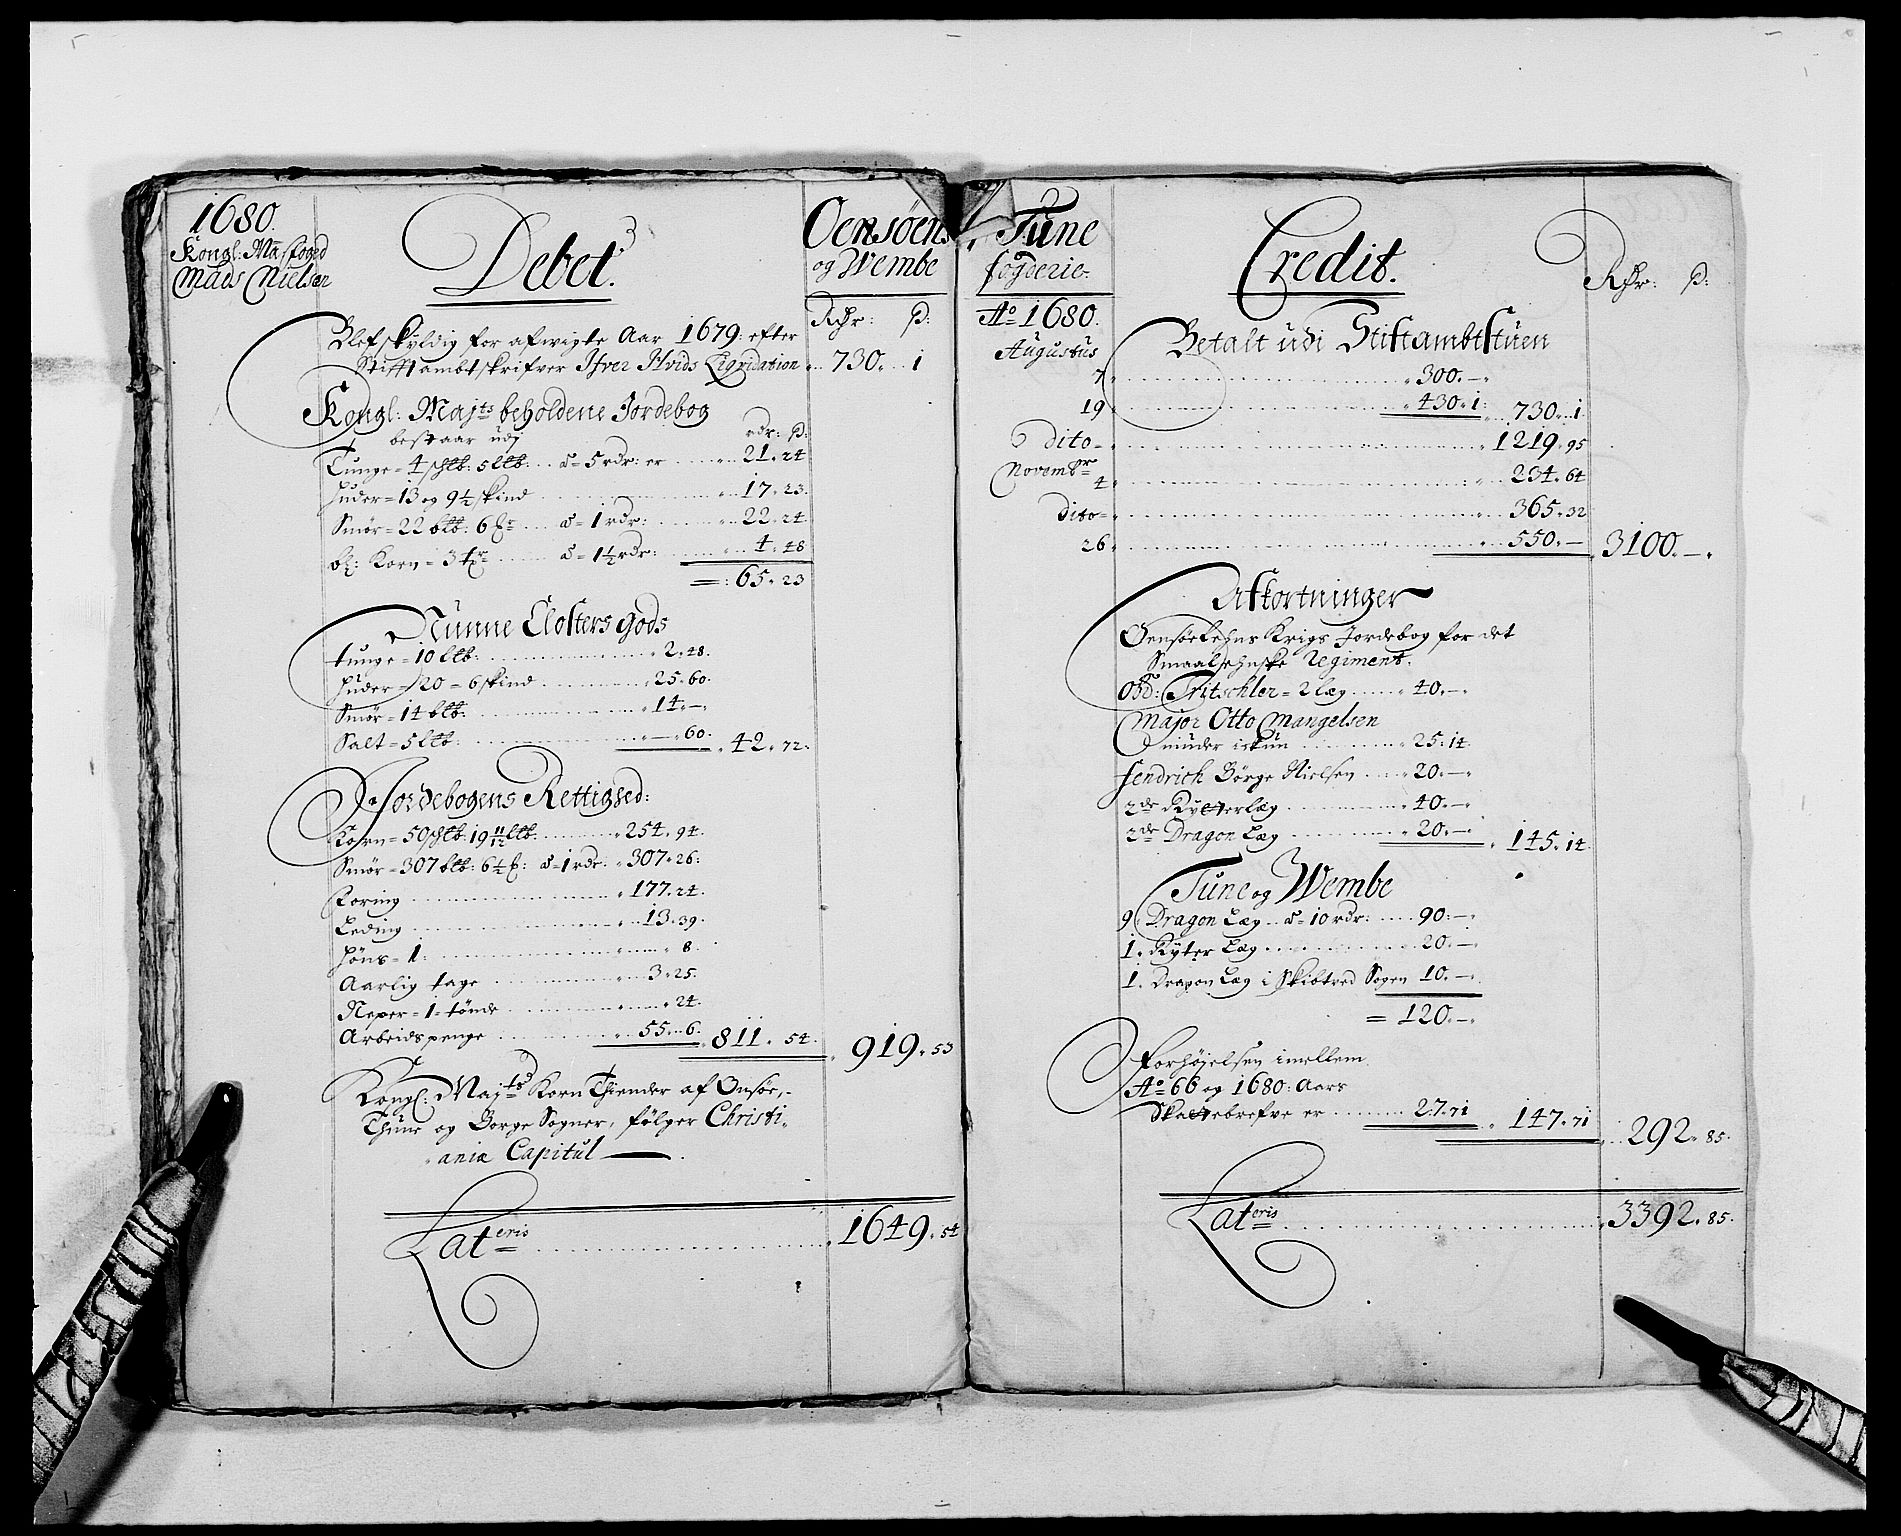 1680.
Kongl: Ma: foged
Mads Nielsen
Debet.
Oensøens
og Wembe
Rdr: ß:
Blef skyldig for afwigte Aar 1679: efter
Stifftambtskrifver Ifver Hvids Liqvidation 730. 1
Kongl: Majts beholdene Jordebog
bestaar udj rdr: ß:
Tunge = 4 schtb: 5 ltb: a= 5 rdr: er 21. 24
Huder = 13 og 9½ skind 17. 23.
Smør = 22 bltb: 6 a= 1 rdr: 22. 24
bl: Korn = 3 a= 1½ rdr: 4. 48
=: 65. 23
Nunne Closters gods
tunge = 10 ltb: 2. 48.
Huder = 20 = 6 skind 25. 60.
Smør = 14 bltb: 14. —
Salt = 5 ltb: — 60. 42. 72.
Jordebogens Rettighed:
Korn = 50 schtb: 19 11/12 ltb. 254. 94.
Smør = 307 bltb: 6½ a= 1 rdr: 307. 26:
Foring 177. 24.
Leding 13. 39.
Høns = 1: 8.
Aarlig tage 3. 25.
Neper = 1 = tønde 24.
Arbeidspenge 55. 6. 811. 54. 919. 53
Kongl: Majts Korn Thiender af Onsøe,
Thune og Borge Sogner, følger Christi-
ania Capitul
Lateris 1649. 54
Tune
fogderie
Ao 1680.
Credit.
Rdr: ß:
Betalt udi Stiftambtstuen
Augustus
7 300. —
19 430. 1. 730. 1.
dito 1219. 95
Novembr
4 234. 64
dito 365. 32
26 550. — 3100. —
Afkortninger
Oensøe Lehns Krigs Jordebog for det
Smaalehnske Regiment.
Obd: Tritschler = 2 læg 40. —
Major Otto Mangelsen
25. 14.
fendrich Børge Nielsen 20. —
2de Rytterlæg 40. —
2de Dragon Læg 20. — 145. 14
Tune og Wembe
9. Dragon Læg a= 10 rdr: 90. —
1. Ryter Læg 20. —
1. Dragon Læg i Skibtved Sogen 10. —
= 120. —
Forhøjelsen imellem
Ao 66 og 1680: Aars
Skattebrefve er 27. 71 147. 71 292. 85.
Lateris 3392. 85.